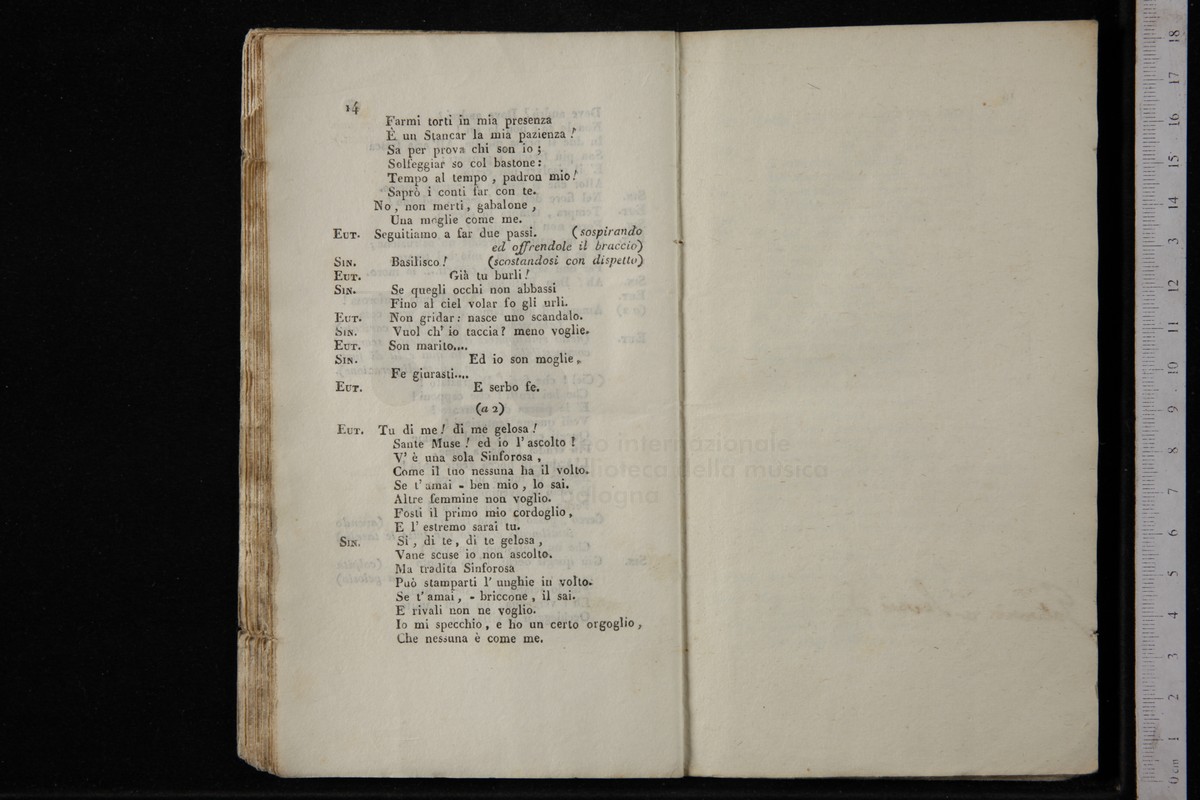 14
Farmi torti in mia presenza
È un Stancar la mia pazienza !
Sa per prova chi son io ;
Solfeggiar so col bastone :
Tempo al tempo , padron mio !
Saprò i conti far con te.
No , non merti , gabalone ,
Una moglie come me.
EUT. Seguitiamo a far due passi. (sospirando
ed offrendole il braccio)
SIN. Basilisco ! (scostandosi con dispetto)
EUT. Già tu burli !
SIN. Se quegli occhi non abbassi
Fino al ciel volar fo gli urli.
EUT. Non gridar : nasce uno scandalo.
SIN. Vuol ch' io taccia ? meno voglie.
EUT. Son marito....
SIN. Ed io son moglie.
Fe giurasti....
EUT. E serbo fe.
(a 2)
EUT. Tu di me ! di me gelosa !
Sante Muse ! ed io l' ascolto !
V' è una sola Sinforosa ,
Come il tuo nessuna ha il volto.
Se t' amai - ben mio , lo sai.
Altre femmine non voglio.
Fosti il primo mio cordoglio ,
E l' estremo sarai tu.
SIN. Sì , di te , di te gelosa ,
Vane scuse io non ascolto.
Ma tradita Sinforosa
Può stamparti l' unghie in volto.
Se t' amai , - briccone , il sai.
E rivali non ne voglio.
Io mi specchio , e ho un certo orgoglio ,
Che nessuna è come me.
internazionale
biblioteca della musica
bologna
0 cm 1 2 3 4 5 6 7 8 9 10 11 12 13 14 15 16 17 18